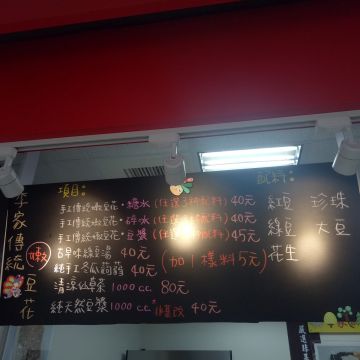 李家傳統豆花
嫩
項目:
手工傳統嫩豆花·糖水(任選3種配料)40元
手工傳統嫩豆花·碎冰(任選 配料)40元
手工傳統嫩豆花·豆漿(任選 配料)45元
古早味綠豆湯 40元
純手工冬瓜蒟蒻 40元
(加1樣料5元)
清涼仙草茶 1000 c.c. 80元
純天然豆漿 1000 c.c. 非基改 40元
配料:
紅豆 珍珠
綠豆 大豆
花生